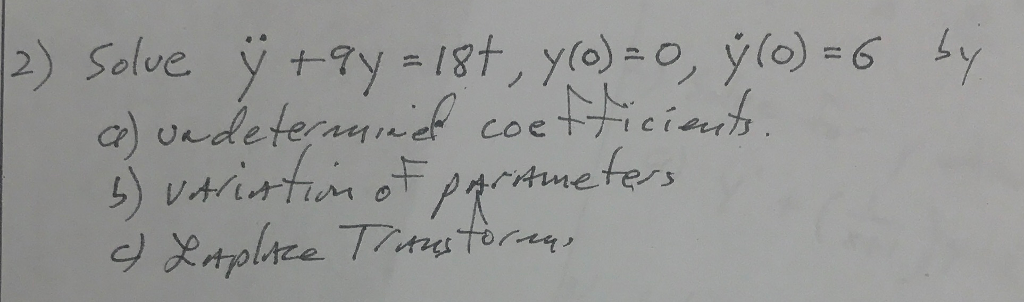 2) Solve ÿ + 9y = 18t, y(0) = 0, ẏ(0) = 6 by
a) undetermined coefficients.
b) variation of parameters
c) Laplace Transforms